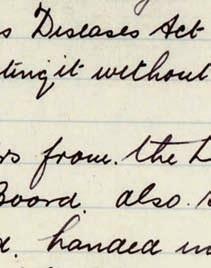 s Diseases Act
ting it without
rs from the L
Board. also.
d. handed in